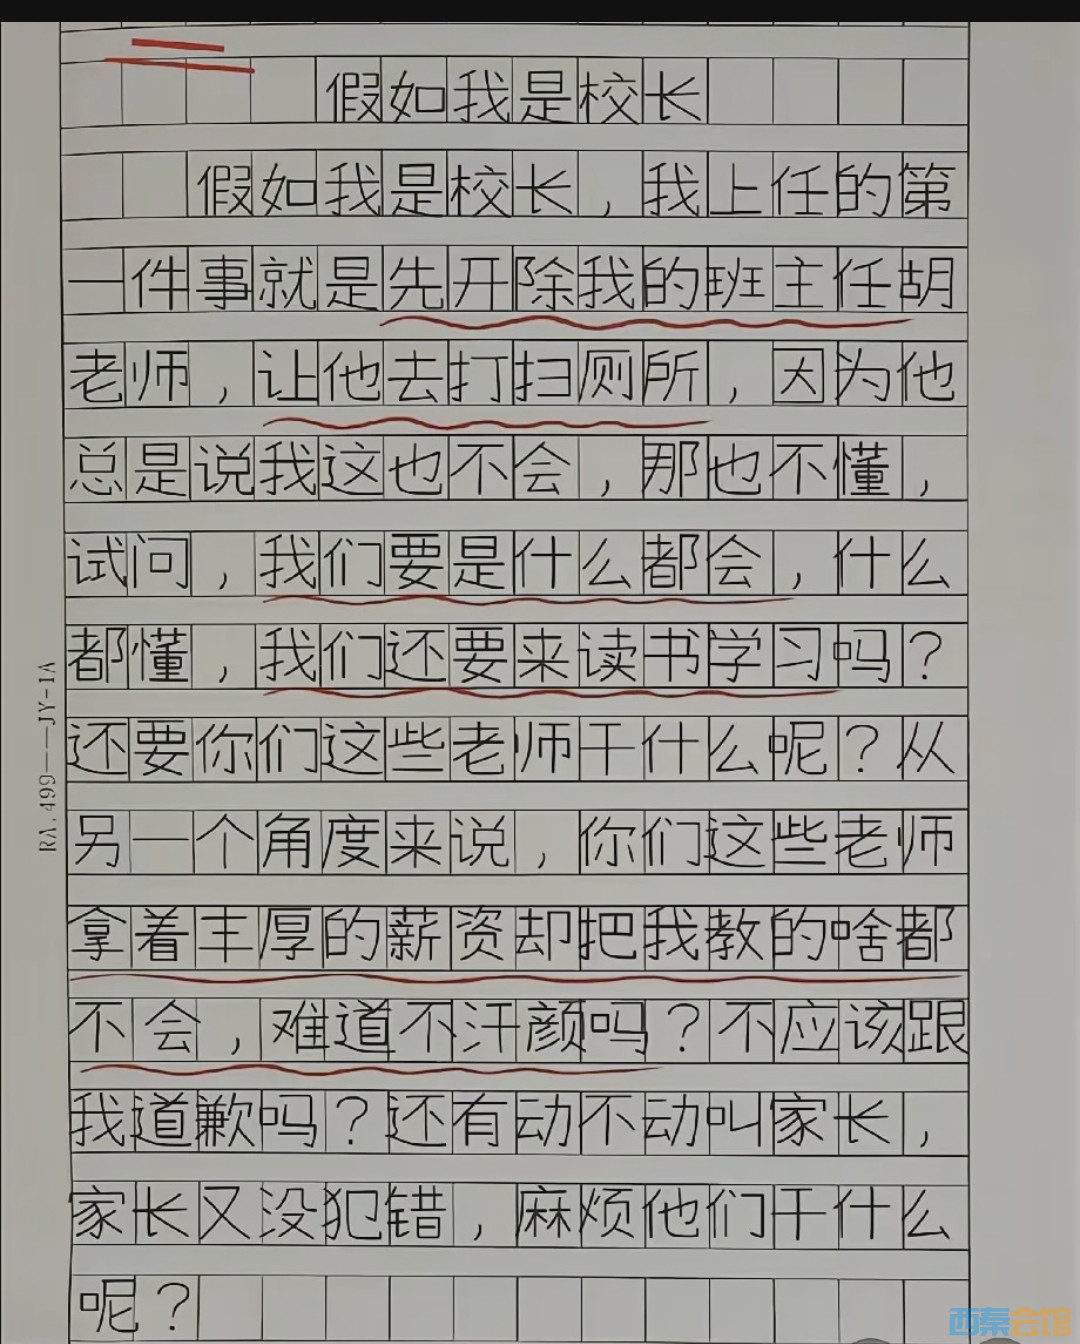 假如我是校长
假如我是校长，我上任的第
一件事就是先开除我的班主任胡
老师，让他去打扫厕所，因为他
总是说我这也不会，那也不懂，
试问，我们要是什么都会，什么
都懂，我们还要来读书学习吗？
还要你们这些老师干什么呢？从
另一个角度来说，你们这些老师
拿着丰厚的薪资却把我教的啥都
不会，难道不汗颜吗？不应该跟
我道歉吗？还有动不动叫家长，
家长又没犯错，麻烦他们干什么
呢？
RA.499——JY-1A
西秦会馆